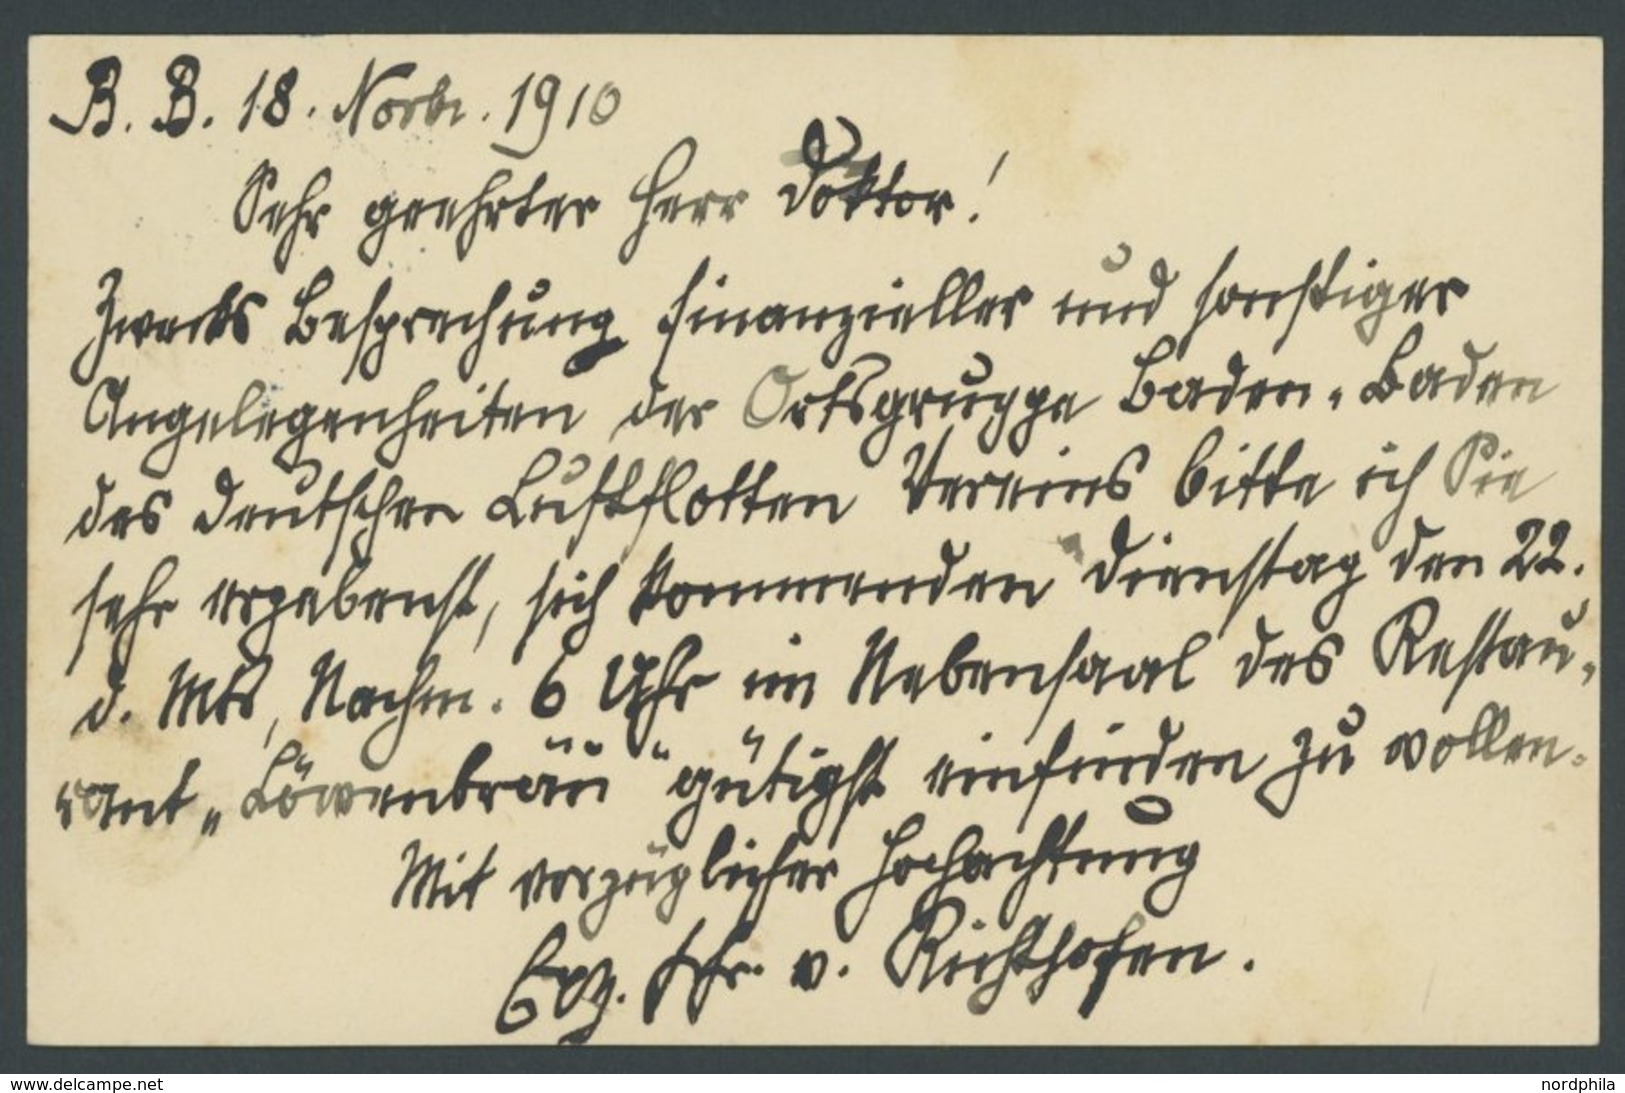 B. B. 18. Novbr. 1910
Sehr geehrter Herr Doktor!
Zwecks Besprechung finanzieller und sonstiger
Angelegenheiten der Ortsgruppe Baden-Baden
des deutschen Luftflotten Vereins bitte ich Sie
sehr ergebenst, sich kommenden Dienstag den 22.
d. Mts, Nachm. 6 Uhr im Nebensaal des Restau-
rant „Löwenbräu“ gütigst einfinden zu wollen.
Mit vorzüglicher Hochachtung
Exz. Frhr. v. Richthofen.
www.delcampe.net
nordphila